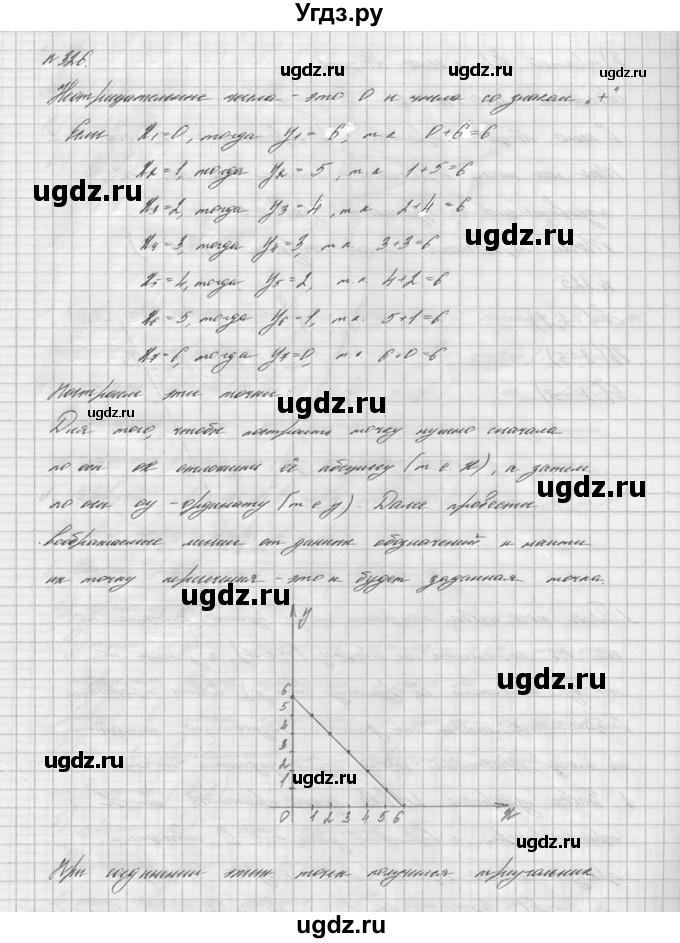 Угдз.ру
№ 326.
ugdz.ru ugdz.ru
Неотрицательные числа - это 0 и числа со знаком „+“
Если x₁=0, тогда y₁= 6, т.к 0+6=6
x₂=1, тогда y₂ = 5, т.к 1+5=6
ugdz.ru ugdz.ru
x₃=2, тогда y₃=4, т.к 2+4=6
ugdz.ru
x₄=3, тогда y₄=3, т.к. 3+3=6
x₅=4, тогда y₅=2, т.к 4+2=6
x₆=5, тогда y₆=1, т.к. 5+1=6
x₇=6, тогда y₇=0, т.к 6+0=6
Построим эти точки.
ugdz.ru ugdz.ru
Для того, чтобы построить точку нужно сначала
по оси ox отложить её абсциссу (т е x), а затем
ugdz.ru
по оси oy - ординату (т е y). Далее провести
воображаемые линии от данных обозначений и найти
их точку пересечения - это и будет заданная точка.
ugdz.ru
y
ugdz.ru
6
5
4
3
2
ugdz.ru ugdz.ru
1
0 1 2 3 4 5 6 x
ugdz.ru
При соединении этих точек получился треугольник
ugdz.ru
ugdz.ru